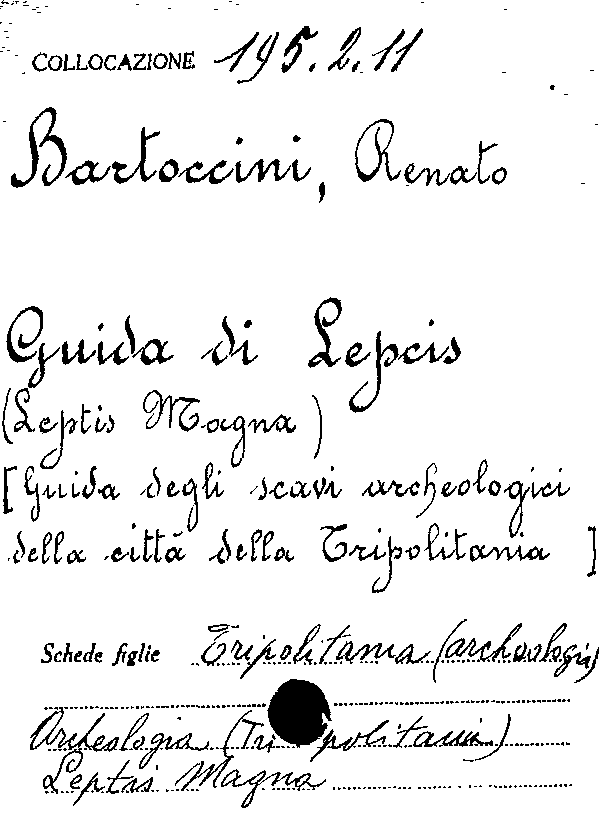 COLLOCAZIONE 195.2.11
Bartoccini, Renato
Guida di Lepcis
(Leptis Magna)
[Guida degli scavi archeologici
della città della Tripolitania ]
Schede figlie Tripolitania (archeologia)
Archeologia (Tripolitania)
Leptis Magna